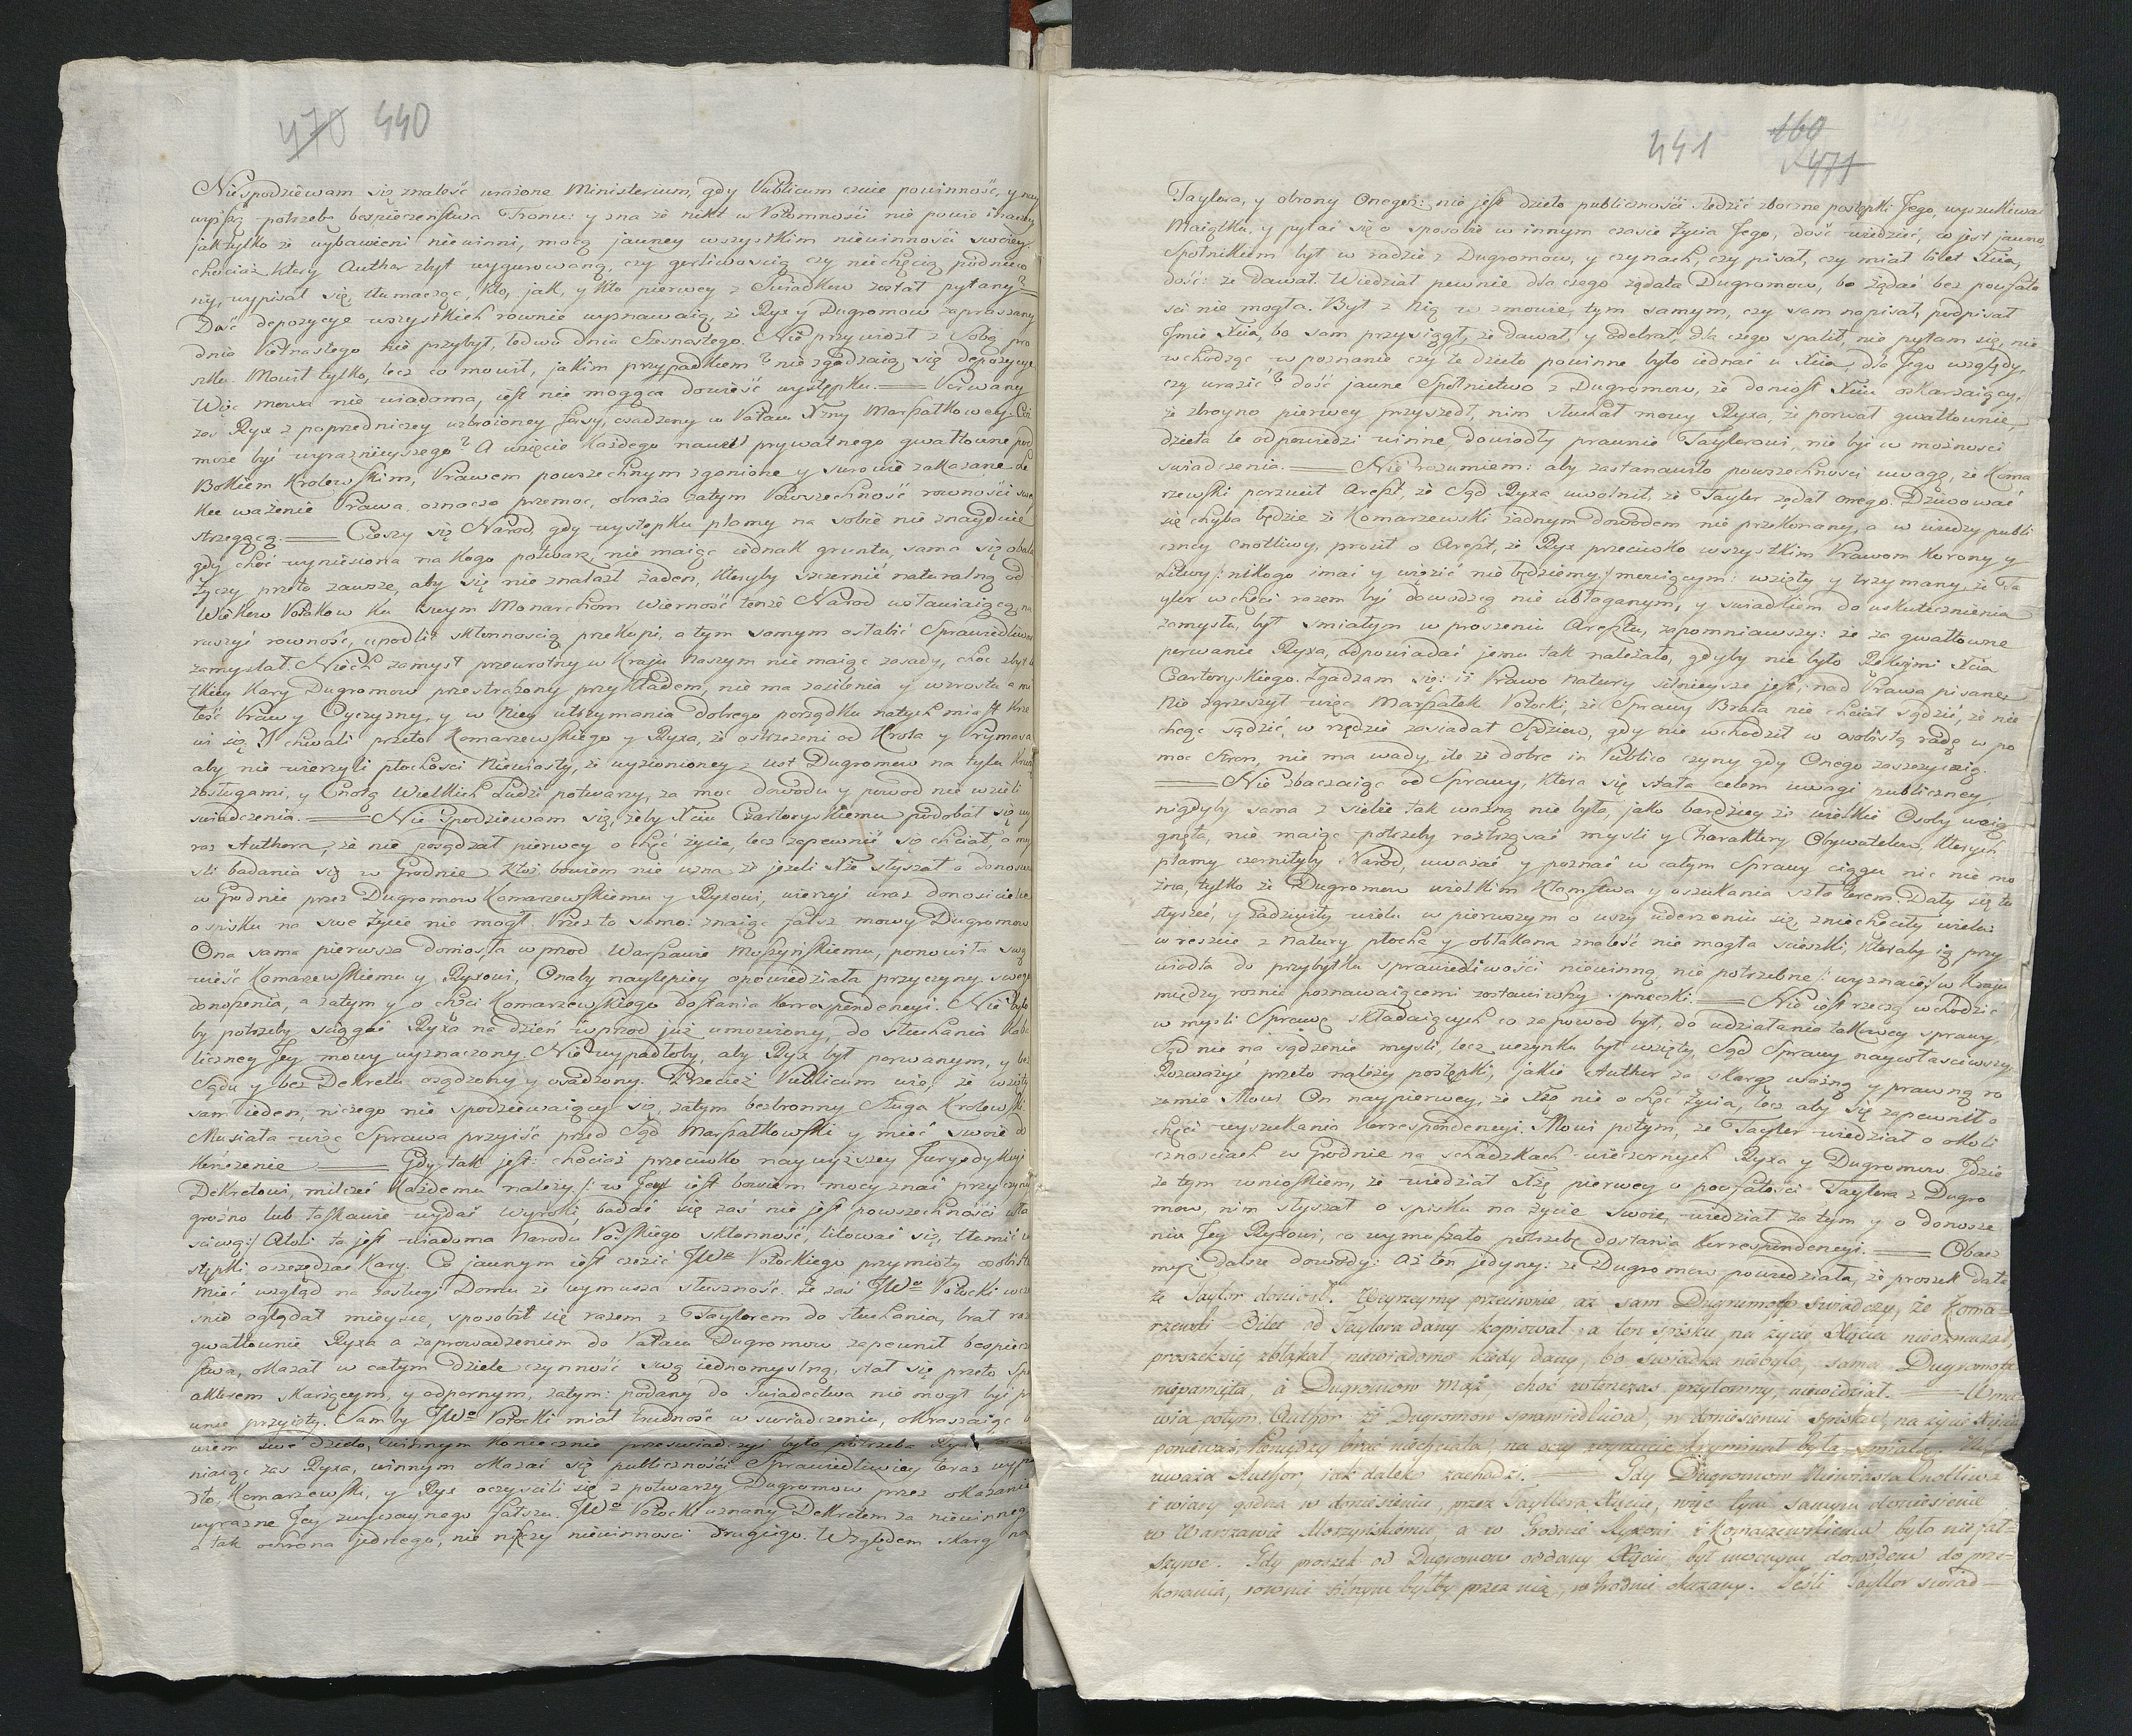 470 440
Niespodziewam się znaleść urażone Ministerium, gdy Publicum czuie powinność, y nay
wyższą potrzebę bezpieczeństwa Tronu: y zna że nikt w Potomności nie powie inaczey
jak tylko że wybawieni niewinni, mocą jawney wszystkim niewinności swoiey
chociaż ktory Author zbyt wygurowaną, czy gorliwością czy niechęcią podniecony
ny, wypisał się, tłumacząc, kto, jak, y kto pierwey z Swiadkow został pytany?
Dość depozycye wszystkich rownie wyznawaią, że Ryx y Dugromow zapraszany
dnia Pietnastego nie przybył, ledwo dnia Szesnastego. Nie przyniozł z Sobą pro
szku. Mowił tylko, lecz co mowił, jakim przypadkiem? nie zgadzaią się depozycye
Więc mowa nie wiadoma, iest nie mogąca dowieść występku. Porwany
zas Ryx z poprzedniczey uzbroioney Jassy, osadzony w Pałacu Xzny Marszałkowey. Coż
może być wyraźnieyszego? A wzięcie każdego nawet prywatnego gwałtowne pod
Bokiem Krolewskim, Prawem powszechnym zganione y surowie zakazane, le
kce ważenie Prawa, oznacza przemoc, obraża zatym Powszechność rowności swey
strzegącą. Cieszy się Narod, gdy występku plamy na sobie nie znayduie
gdy choć wyniesiona na kogo potwarz, nie maiąc iednak gruntu, sama się obala
Życzy przeto zawsze, aby się nie znalazł żaden, ktoryby szczernić naturalną od
Wiekow Polakow ku swym Monarchom wierność tenże Narod wsławiaiącą, na
ruszyć rowność, upodlić skłonnością przekupi, a tym samym osłabić Sprawiedliwość
zamyślał. Niech zamysł przewrotny w Kraju Naszym nie maiąc zasady, choc zbyt le
tkiey Kary Dugromow przestraszony przykładem, nie ma zasilenia y wzrostu a mi
łość Praw y Oyczyzny, y w Niey utrzymania dobrego porządku natychmiast krze
wi się. Y chwali przeto Komarzewskiego y Ryxa, że ostrzeżeni od Krola y Prymasa
aby nie wierzyli płochości Niewiasty, że wyzionioney z ust Dugromow na tylu Krwią
zasługami, y Cnotą Wielkich Ludzi potwarzy, za moc dowodu y powod nie wzieli
swiadczenia. Nie Spodziewam się, żeby Xciu Czartoryskiemu podobał się wy
raz Authora, że nie posądzał pierwey o chęć życia, lecz zapewnić się chciał, o my
śli badania się w Grodnie. Ktoż bowiem nie uzna że jeżeli Xże słyszał o donosie
w Grodnie przez Dugromow Komarzewskiemu y Ryxowi, wierzyć wraz donosicielce
o spisku na swe życie nie mogł. Przez to samo: znaiąc fałsz mowy Dugromow
Ona sama pierwsza doniosła wprzod Warszawie Moszyńskiemu, ponowiła swą
wieść Komarzewskiemu y Ryxowi, Onaby naylepiey opowiedziała przyczyny swego
donoszenia, a zatym y o chęci Komarzewskiego dostania korrespondencyi. Nie było
by potrzeby sciągać Ryxa na dzień wprzod już umowiony, do słuchania Pub
liczney Jey mowy wyznaczony. Nie wypadłoby, aby Ryx był porwanym, y bez
Sądu y bez Dekretu osądzony y osadzony. Przecież Publicum wie, że wzięty
sam ieden, niczego nie spodziewaiący się, zatym bezbronny Sługa Krolewski
Musiała więc Sprawa przyiść przed Sąd Marszałkowski y mieć swoie do
kończenie Gdy tak jest: chociaż przeciwko naywyższey Juryzdykcyi
Dekretowi, milczeć każdemu należy /: w Jey iest bowiem mocy znać przyczyny
grozno lub łaskawie wydać wyroki, badać się zaś nie jest powszechności wła
sciwą :/ Atoli ta jest wiadoma Narodu Polskiego skłonność, litować się, tłumić wy
stępki oszczędzać Kary. Co jawnym iest czcić JWo Potockiego przymioty osobiste
Mieć wzgląd na Zasługi Domu że wymusza słuszność. Że zaś JWo Potocki wcze
snie oglądał mieysce, sposobił się razem z Taylorem do słuchania, brał raz
gwałtownie Ryxa a zaprowadzeniem do Pałacu Dugromow zapewnił bezpiecz
stwa, okazał w całym dziele czynność swą iednomyslną, stał się przeto Spo
aktorem skarżącym, y odpornym, zatym: podany do swiadectwa nie mogł być pra
wnie przyięty. Samby JWo Potocki miał trudność w swiadczeniu, okraszaiąc bo
wiem swe dzieło, winnym koniecznie przeswiadczyć było potrzeba Ryxa
niaiąc zas Ryxa, winnym okazać się publiczności Sprawiedliwiey teraz wypa
dło, Komarzewski, y Ryx oczyścili się z potwarzy Dugromow przez okazanie
wyrazne Jey zwyczaynego fałszu. JWo Potocki uznany Dekretem za niewinnego
a tak ochrona jednego, nie niszczy niewinności drugiego. Względem skarg na
441 160 471
Taylora, y obrony Onegoż: nie jest dzieło publiczności sledzić zboczne postępki Jego, wyszukiwać
Maiątku, y pytać się o sposobie w innym czasie życia Jego, dość wiedzieć, co jest jawno
Spolnikiem był w radzie z Dugromow, y czynach, czy pisał, czy miał bilet Xcia,
dość: że dawał. Wiedział pewnie dla czego żądała Dugromow, bo żądać bez poufało
sci nie mogła. Był z Nią w zmowie, tym samym, czy sam napisał, podpisał
Jmie Xcia, bo sam przysiągł, że dawał, y odebrał, dla czego spalił, nie pytam się, nie
wchodząc w poznanie czy te dzieło powinne było iednać u Xcia, dla Jego względy,
czy urazić? dość jawne Spolnictwo z Dugromow, że doniosł Xciu oskarżaiący,
że zbroyno pierwey przyszedł, nim słuchał mowy Ryxa, że porwał gwałtownie,
dzieła te odpowiedzi winne, dowiodły prawnie Taylorowi, nie być w możności
swiadczenia. Nie rozumiem: aby zastanawiło powszechności uwagę, że Koma
rzewski porzucił Areszt, że Sąd Ryxa uwolnił, że Taylor żądał onego. Dziwować
się chyba będzie że Komarzewski żadnym dowodem nie przekonany, a w wiedzy publi
czney cnotliwy, prosił o Areszt, że Ryx przeciwko wszystkim Prawom Korony y
Litwy /: nikogo imać y więzić nie będziemy :/ mowiącym: wzięty y trzymany, że Ta
ylor w chęci razem być dowodzcą nie ubłaganym, y swiadkiem do uskutecznienia
zamysłu, był smiałym w proszeniu Aresztu, zapomniawszy: że za gwałtowne
porwanie Ryxa, odpowiadać jemu tak należało, gdyby nie było Rękoymi Xcia
Czartoryskiego. Zgadzam się: iż Prawo Natury silnieysze jest, nad Prawa pisane
Nie zgrzeszył więc Marszałek Potocki, że Sprawy Brata nie chciał sądzić, że nie
chcąc sądzić, w rzędzie zasiadał Sędziow, gdy nie wchodził w osobistą radę w po
moc Stron, nie ma wady, ile że dobre in Publico czyny gdy Onego zaszczycaią.
Nie zbaczaiąc od Sprawy, ktora się stała celem uwagi publiczney,
nigdyby sama z siebie tak ważną nie była, jako bardziey że wielkie Osoby wcią
gnęła, nie maiąc potrzeby roztrząsać mysli y Charaktery Obywatelow, ktorych
plamy czerniłyby Narod, uważać y poznać w całym Sprawy ciągu nic nie mo
żna, tylko że Dugromow wielkim Kłamstwa y oszukania szła torem. Dały się to
słyszeć, y zadziwiły wielu w pierwszym o uszy uderzeniu się, zniechęciły wielu
w reszcie z Natury płocha y obłąkana znaleść nie mogła scieszki, ktoraby ią przy
wiodła do przybytku sprawiedliwości niewinną, nie potrzebne /: wyznaię :/ w Kraju
między roznie poznawaiącemi zostawiwszy sprzeczki. Nie iest rzeczą wchodzić
w mysli Sprawę składaiących co za powod był, do udziałania takowey sprawy,
Sąd nie na sądzenie mysli, lecz uczynku był wzięty, Sąd Sprawy naywłasciwszy.
Rozważyć przeto należy postępki, jakie Author za skargę ważną y prawną ro
zumie. Mowi On naypierwey, że Xże nie o chęć życia, lecz aby się zapewnił o
chęci wyszukania korrespondencyi. Mowi potym, że Taylor wiedział o okoli
cznosciach w Grodnie na schadzkach wieczornych Ryxa y Dugromow. Idzie
za tym wnioskiem, że wiedział Xżę pierwey o poufałości Taylora z Dugro
mow, nim słyszał o spisku na życie swoie, wiedział za tym y o donosze
niu Jey Ryxowi, co wymoszało potrzebę dostania korrespondencyi. Obacz
myż dalsze dowody: Aż ten jedyny: że Dugromow powiedziała, że proszek dała
że Taylor doniosł. Weyrzymy przeciwnie, aż sam Dugrumoff swiadczy, że Koma-
rzewski Bilet od Taylora dany kopiował, a ten spisku na życie Xięcia nieoznaczał,
proszek się zbłąkał, niewiadomo kiedy dany, bo swiadka niebyło, sama Dugromofa
niepamięta, a Dugromow mąż choć wtenczas przytomny, niewidział. Wma
wia potym Author że Dugromow sprawiedliwa, w doniesieniu spisku, na życie Xięcia
ponieważ pieniędzy brać niechciała, na oczy wyrzucić kryminał była smiała.
uwaza Author, jak daleko zachodzi. Gdy Dugromow Niewiasta Cnotliwa
i wiary godna w doniesieniu, przez Tayllora Xięciu, więc tym samym doniesienie
w Warszawie Moszyńskiemu, a w Grodnie Ryxowi i Komarzewskiemu było nie fał-
szywe. Gdy proszek od Dugromow oddany Xięciu był mocnym dowodem do prze-
konania, rownie silnym byłby przez nią, w Grodnie okazany. Jeśli Tayllor swiad-